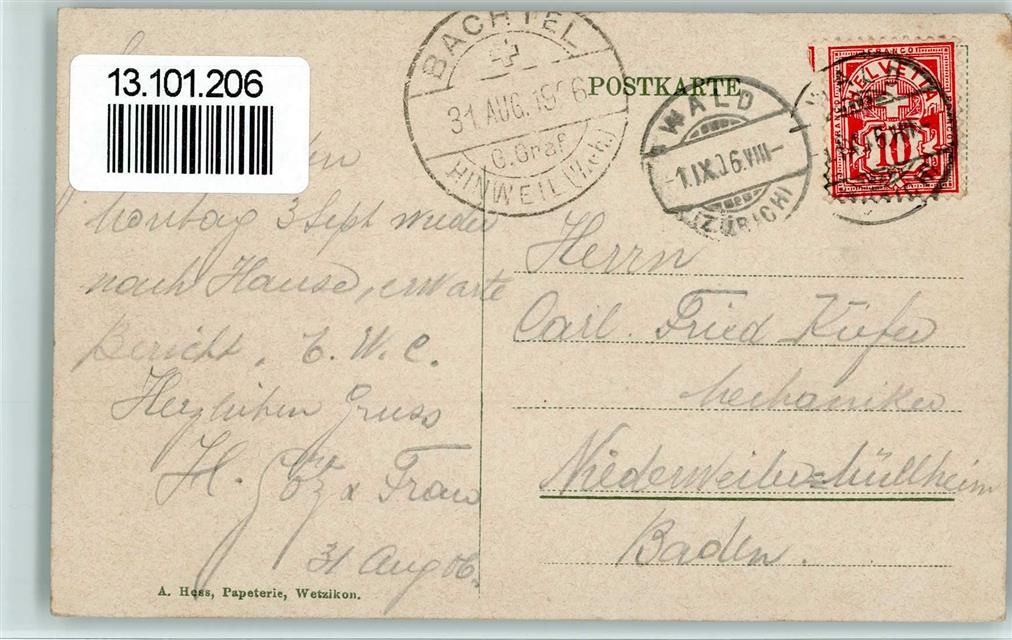 13.101.206
BACHTEL
31. AUG. 1906
G. Graf
HINWEIL (Zch.)
POSTKARTE
WALD
-1.IX.06.VIII-
(ZÜRICH)
FRANCO
HELVETIA
10
Montag 3 Sept wieder
nach Hause, erwarte
Bericht. E. W. C.
Herzlichen Gruss
H. & Frau
31 Aug 06.
Herrn
Carl. Fried Küfer
Mechaniker
Niederweiler=Müllheim
Baden.
A. Hess, Papeterie, Wetzikon.